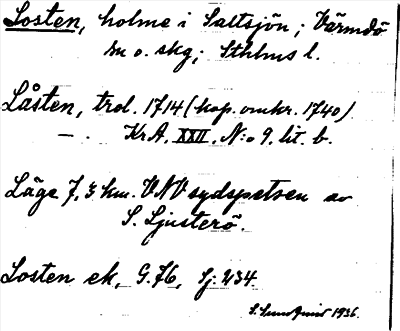 Losten, holme i Saltsjön; Värmdö
sn o. skg; Sthlms l.
Låsten, trol. 1714 (kop. omkr. 1740)
— . Kr.A. XXII, N:o 9, lit. b.
Läge 7,3 km. VNV sydspetsen av
S. Ljusterö.
Losten ek, G. 76, Sj: 234.
1936.